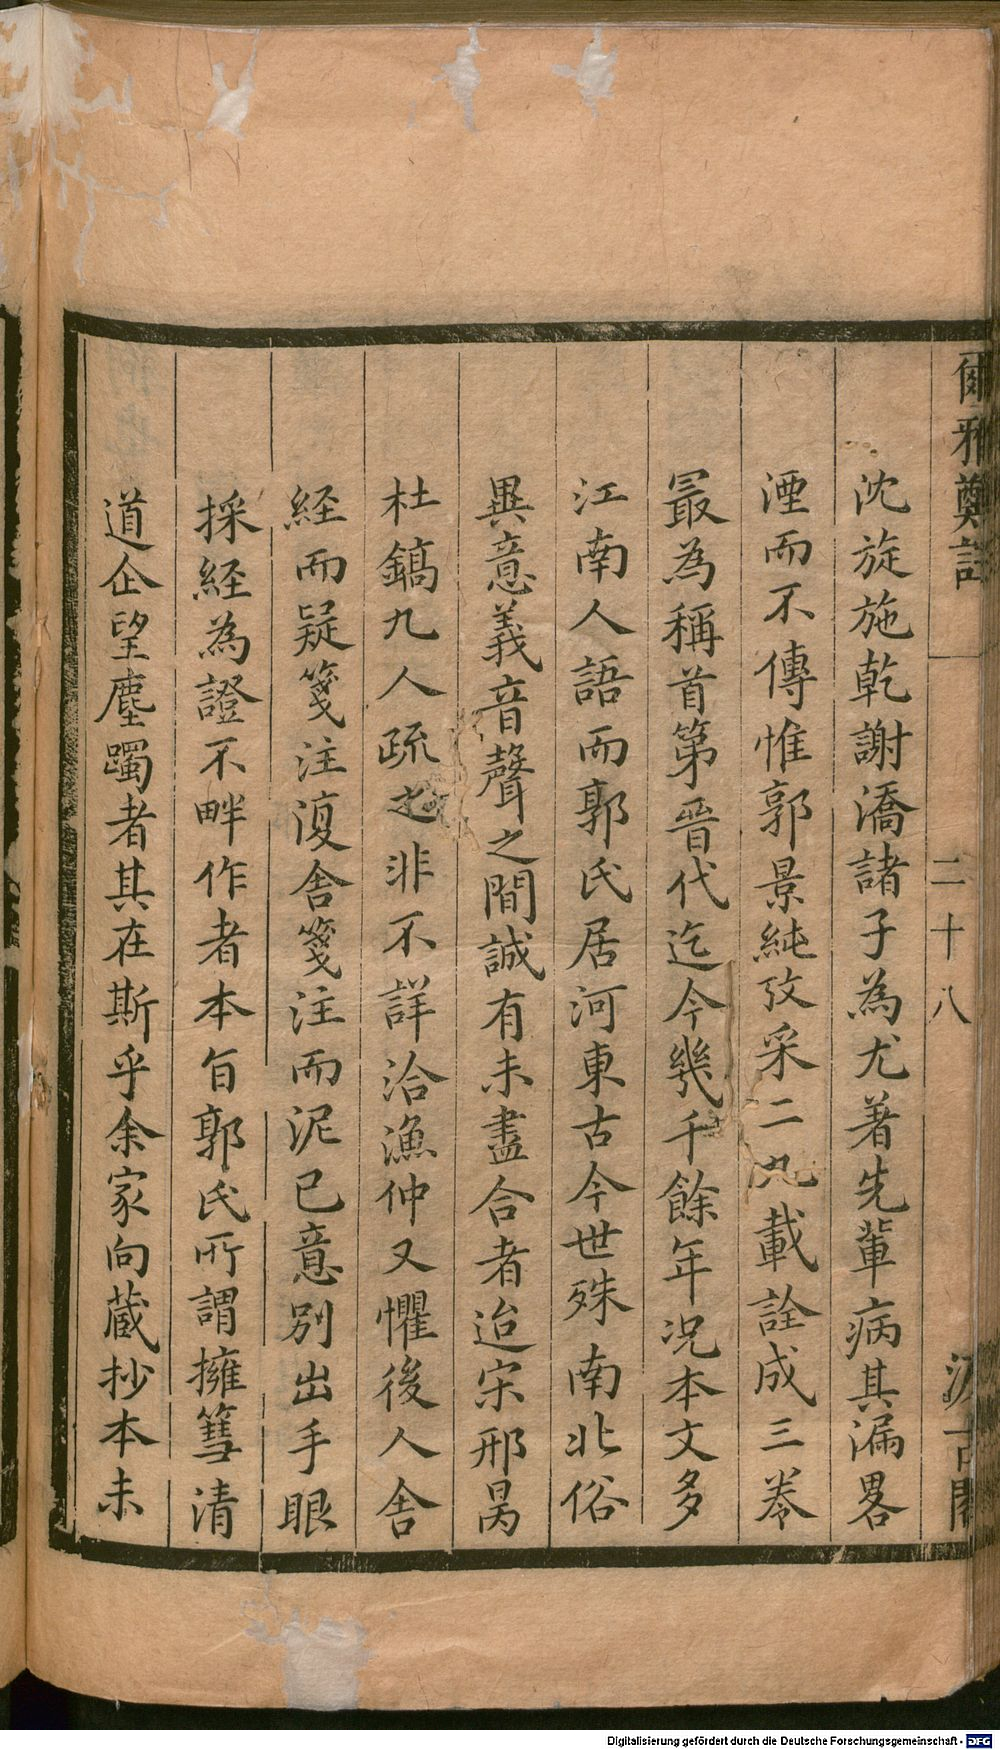 爾雅鄭註
二十八
汲古閣
沈旋施乾謝潘諸子為尤著先輩病其漏畧
湮而不傳惟郭景純攷采二九載詮成三卷
最為稱首第晉代迄今幾千餘年况本文多
江南人語而郭氏居河東古今世殊南北俗
異意義音聲之間誠有未盡合者迨宋邢昺
杜鎬九人疏之非不詳洽漁仲又懼後人舍
経而疑箋注復舍箋注而泥已意別出手眼
採経為證不畔作者本旨郭氏所謂擁篲清
道企望塵躅者其在斯乎余家向藏抄本未
Digitalisierung gefördert durch die Deutsche Forschungsgemeinschaft - DFG